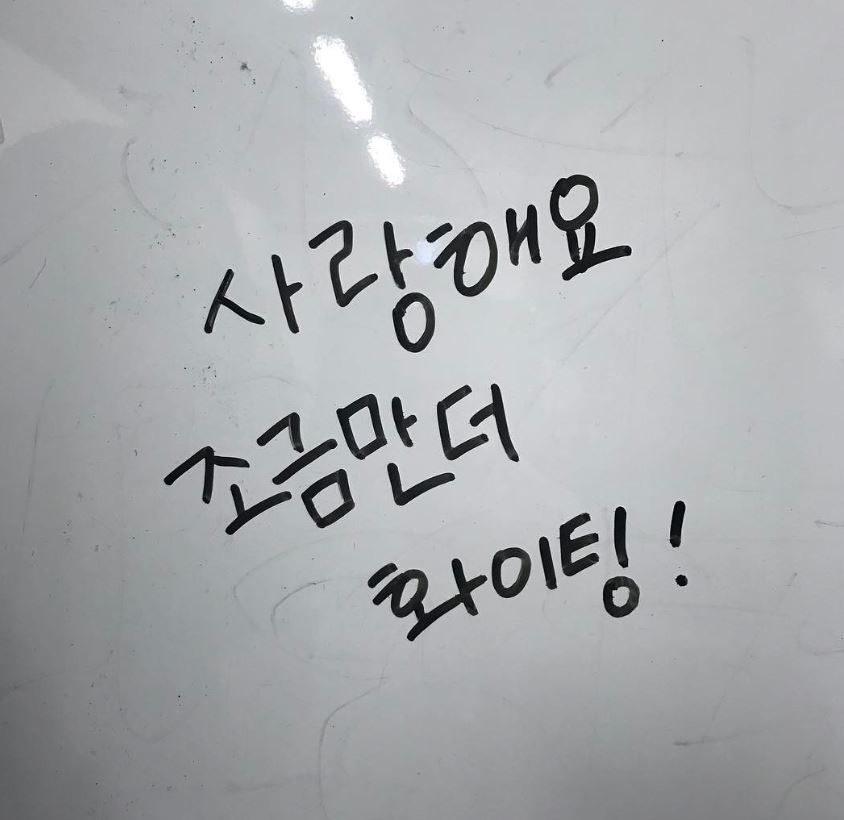 사랑해요
조금만더
화이팅!